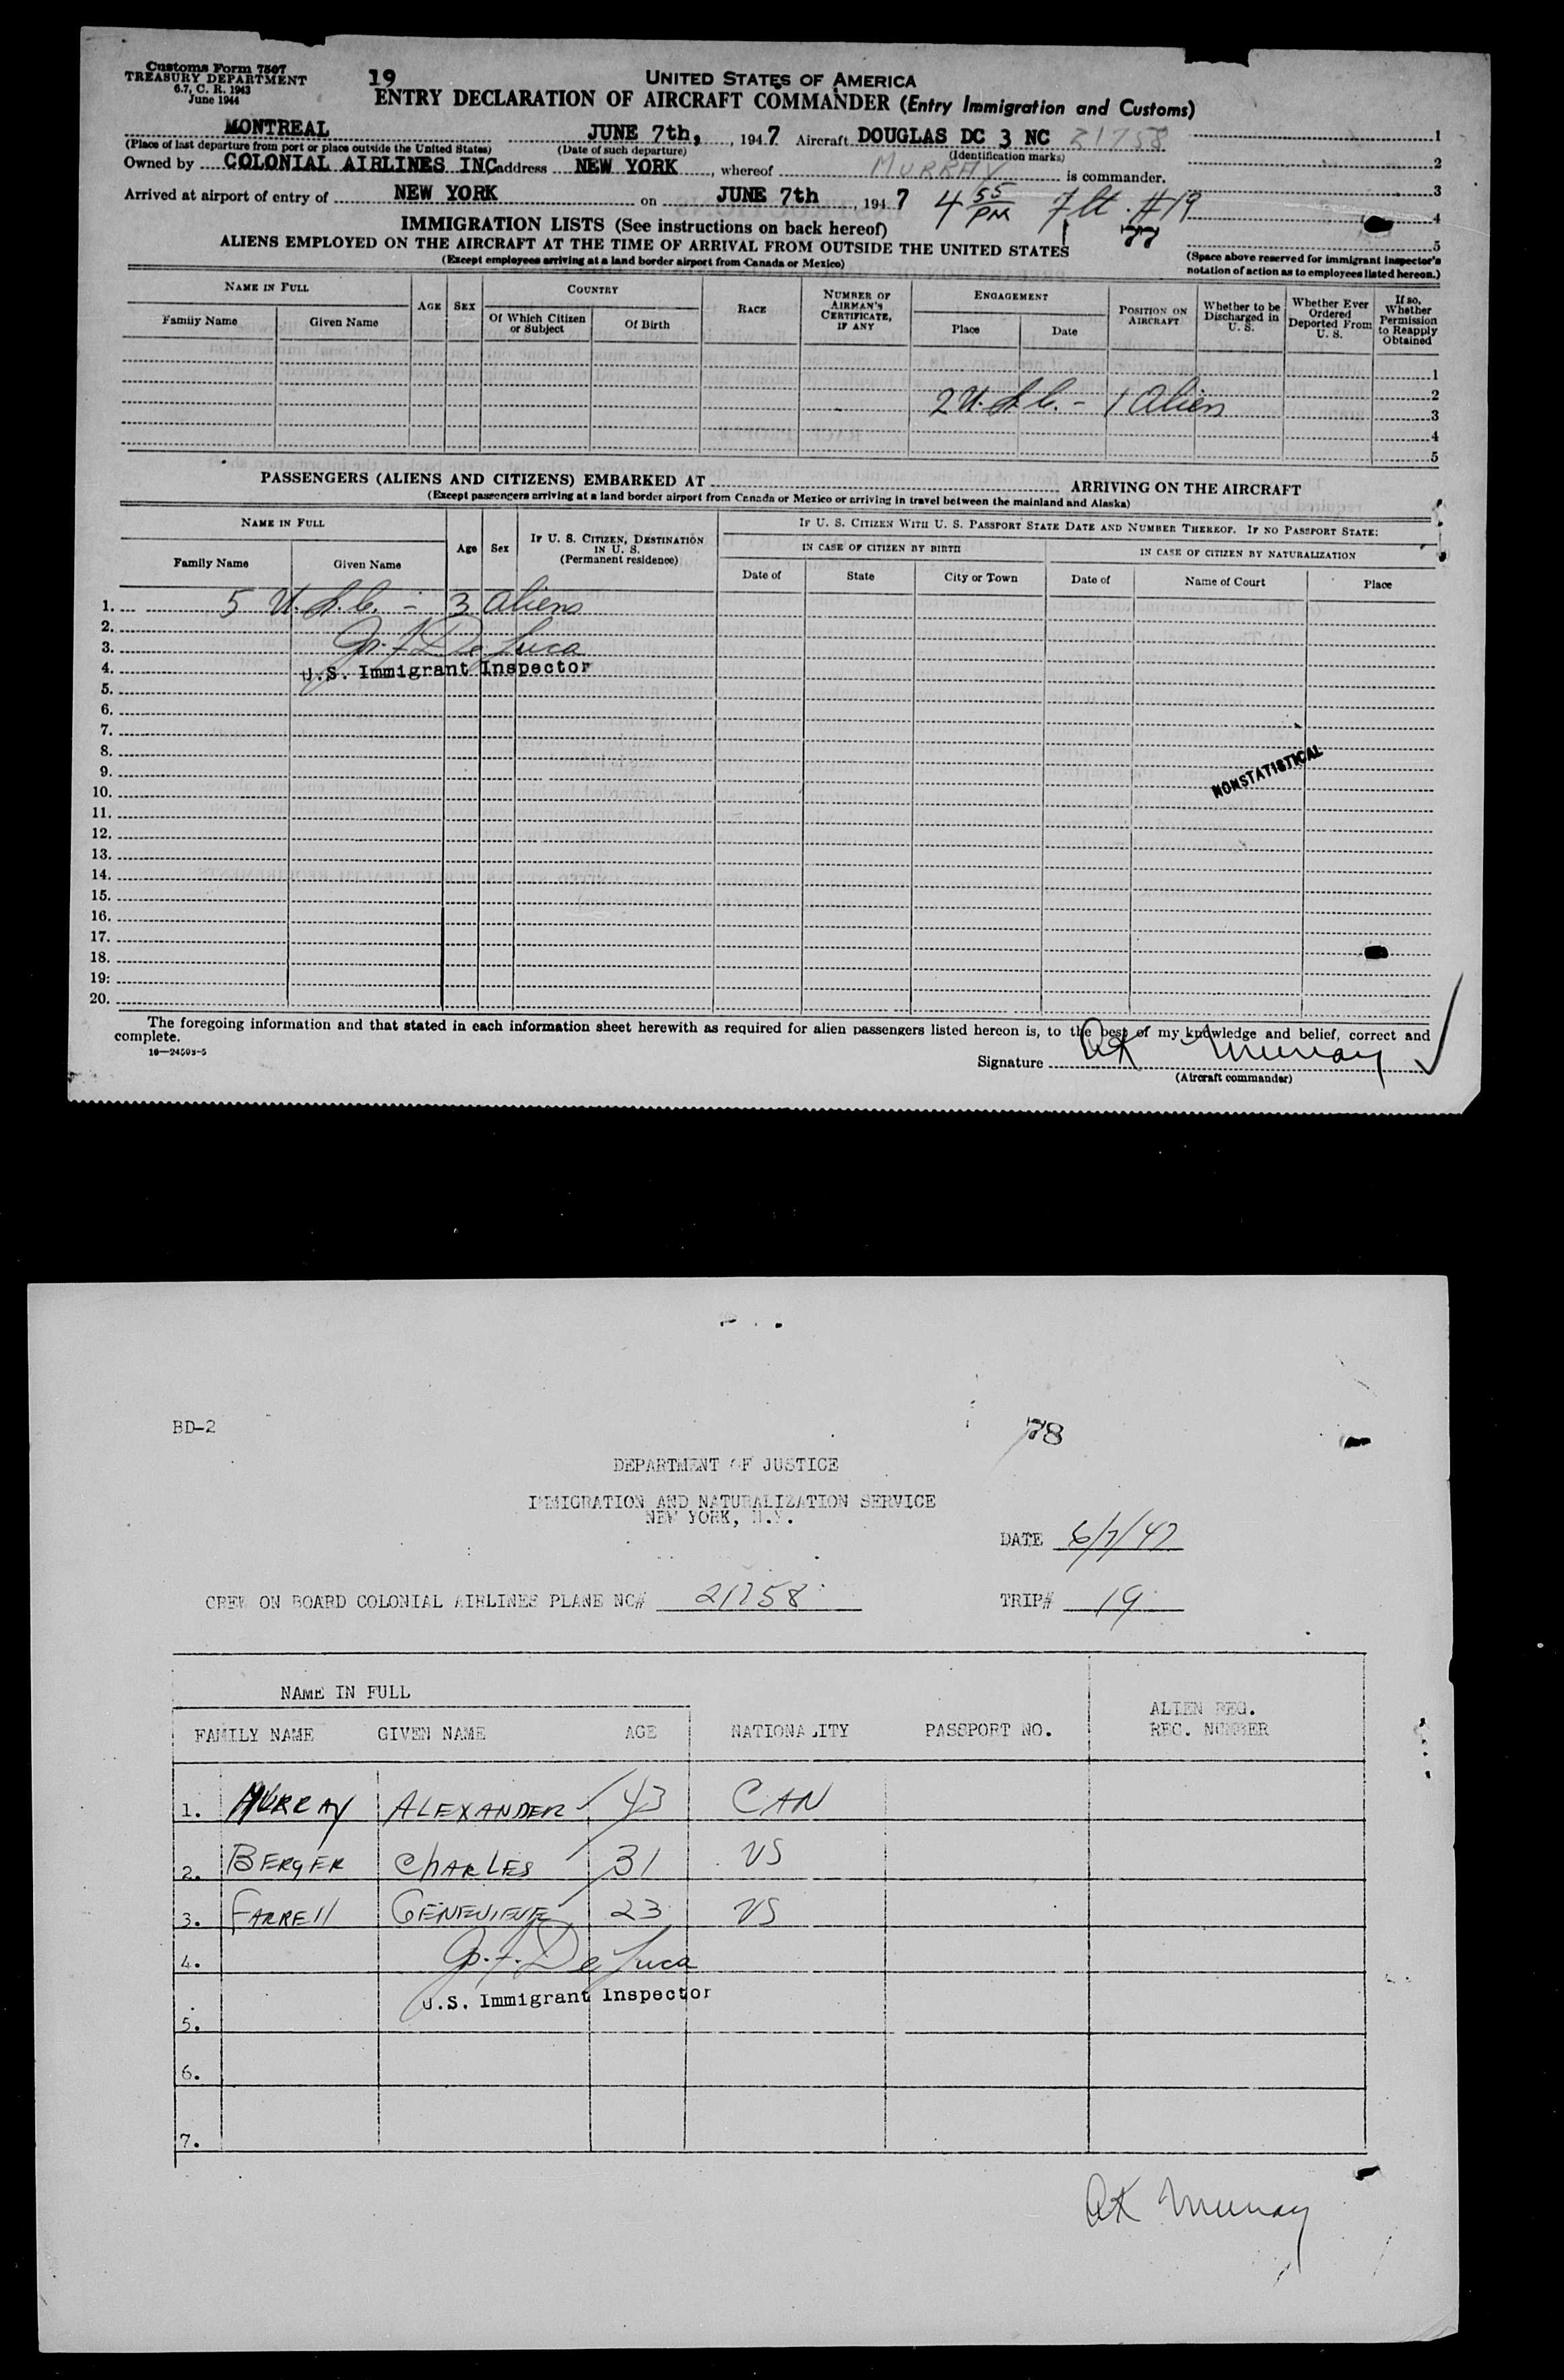 Customs Form 7507
TREASURY DEPARTMENT
6.7, C. R. 1943
June 1944
19
UNITED STATES OF AMERICA
ENTRY DECLARATION OF AIRCRAFT COMMANDER (Entry Immigration and Customs)
MONTREAL JUNE 7th, , 1947 Aircraft DOUGLAS DC 3 NC 21758 1
(Place of last departure from port or place outside the United States) (Date of such departure) (Identification marks)
Owned by COLONIAL AIRLINES INC address NEW YORK , whereof MURRAY is commander. 2
3
Arrived at airport of entry of NEW YORK on JUNE 7th , 1947 4 55 PM Flt. #19 4
77
5
IMMIGRATION LISTS (See instructions on back hereof)
ALIENS EMPLOYED ON THE AIRCRAFT AT THE TIME OF ARRIVAL FROM OUTSIDE THE UNITED STATES
(Except employees arriving at a land border airport from Canada or Mexico)
(Space above reserved for immigrant inspector's notation of action as to employees listed hereon.)
NAME IN FULL AGE SEX COUNTRY RACE NUMBER OF AIRMAN'S CERTIFICATE, IF ANY ENGAGEMENT POSITION ON AIRCRAFT Whether to be Discharged in U. S. Whether Ever Ordered Deported From U. S. If so, Whether Permission to Reapply Obtained
Family Name Given Name Of Which Citizen or Subject Of Birth Place Date
1
2 U.S.C. - 1 Alien 2
3
4
5
PASSENGERS (ALIENS AND CITIZENS) EMBARKED AT ARRIVING ON THE AIRCRAFT
(Except passengers arriving at a land border airport from Canada or Mexico or arriving in travel between the mainland and Alaska)
NAME IN FULL Age Sex IF U. S. CITIZEN, DESTINATION IN U. S. (Permanent residence) IF U. S. CITIZEN WITH U. S. PASSPORT STATE DATE AND NUMBER THEREOF. IF NO PASSPORT STATE:
IN CASE OF CITIZEN BY BIRTH IN CASE OF CITIZEN BY NATURALIZATION
Family Name Given Name Date of State City or Town Date of Name of Court Place
1. 5 U.S.C. - 3 Aliens
2.
3. De Luca
4. U.S. Immigrant Inspector
5.
6.
7.
8.
9.
NONSTATISTICAL
10.
11.
12.
13.
14.
15.
16.
17.
18.
19.
20.
The foregoing information and that stated in each information sheet herewith as required for alien passengers listed hereon is, to the best of my knowledge and belief, correct and
complete.
16—24503-5
Signature AK Murray
(Aircraft commander)
BD-2
78
DEPARTMENT OF JUSTICE
IMMIGRATION AND NATURALIZATION SERVICE
NEW YORK, N.Y.
DATE 6/7/47
CREW ON BOARD COLONIAL AIRLINES PLANE NC# 21758 TRIP# 19
NAME IN FULL
FAMILY NAME GIVEN NAME AGE NATIONALITY PASSPORT NO. ALIEN REG. REC. NUMBER
1. MURRAY ALEXANDER 43 CAN
2. BERGER CHARLES 31 US
3. FARRELL GENEVIEVE 23 US
4. De Luca
U.S. Immigrant Inspector
5.
6.
7.
AK Murray